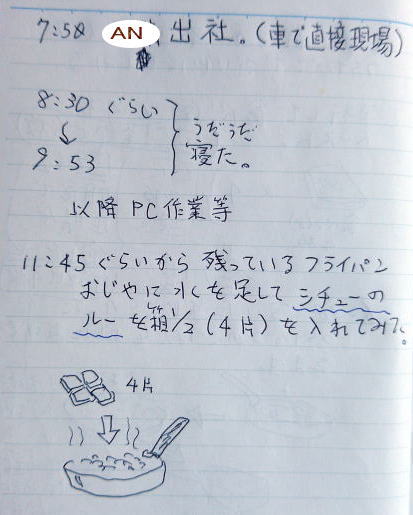 7:50 AN 出社。(車で直接現場)
8:30 ぐらい
↓
9:53
うだうだ
寝た。
以降 PC作業等
11:45 ぐらいから 残っている フライパン
おじやに 水を足して シチューの
ルー を箱1/2 (4片) を入れてみた。
4片